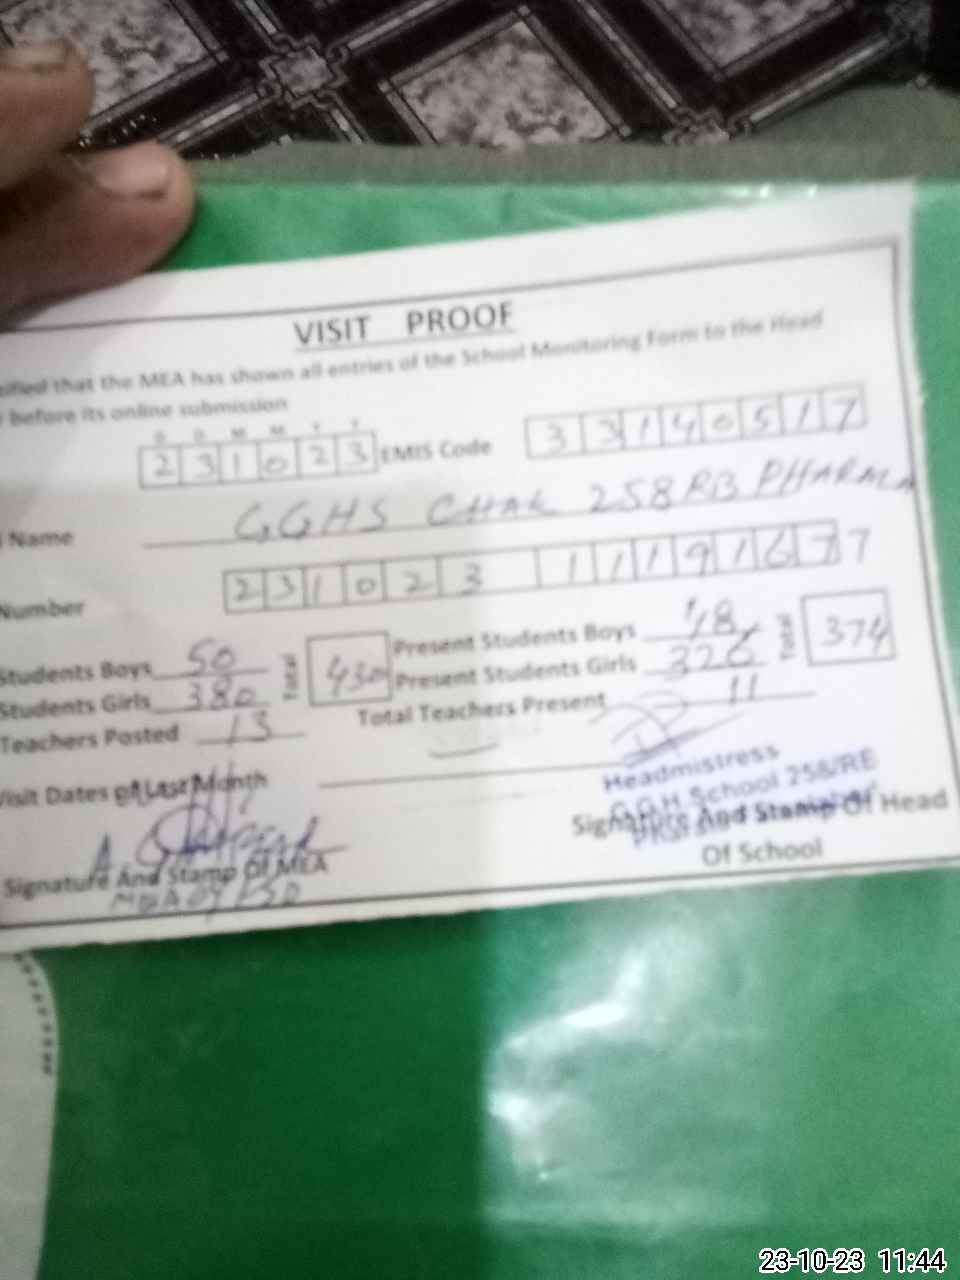 VISIT PROOF
that the MEA has shown all entries of the School Monitoring Form to the Head
before its online submission
D D M M Y Y
2 3 1 0 2 3 EMIS Code 3 3 1 4 0 5 1 7
Name GGHS CHAK 258 RB PHARALA
Number 2 3 1 0 2 3 1 1 1 9 1 6 7 7
Students Boys 50 Total 430 Present Students Boys 48 Total 374
Students Girls 380 Present Students Girls 326
Teachers Posted 13 Total Teachers Present 11
Visit Dates of Last Month
Headmistress
G.G.H. School 258/RB
Signature And Stamp Of Head
Of School
Signature And Stamp Of MEA
23-10-23 11:44